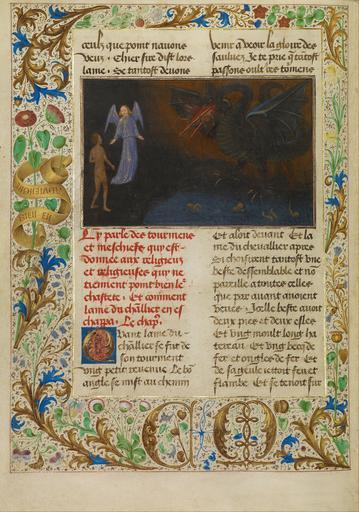 ceulx que point nauons
deux. Chier sire dist lors
lame. Se tantost deuons
venir a veoir la gloire des
saulues. Je te prie que tatost
passons oult' ces tormens
Cy parle des tourmens
et meschiefz quy est
donnee aux religieux
et religieuses quy ne
tiennent point bien le'
chastete. Et comment
lame du chlier en es
chappa. Le chap.
Quant lame du
chlier se fut de
son tourment
vng petit reuenue Le bo
angle se mist au chemin
Et aloit deuant Et la
me du cheuallier apres
Si choisirent tantost vne
beste dessemblable et no
pareille a toutes celles
que par auant auoient
veues. Jcelle beste auoit
deux pies et deux elles
Et vng moult long ha
terel. Et vng becq de
fer et ongles de fer Et
de sa geule iettoit feu et
flambe Et se tenoit sur